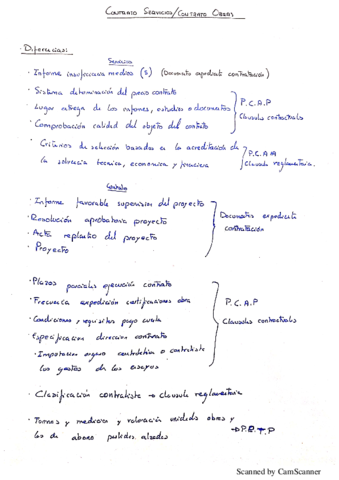 CONTRATO SERVICIOS/CONTRATO OBRAS
Diferencias:
Servicios
· Informe insuficiencia medios (S) (Documento expediente contratación)
· Sistema determinación del precio contrato
· Lugar entrega de los informes, estudios o documentos
· Comprobación calidad del objeto del contrato
P.C.A.P
Clausulas contractuales
· Criterios de selección basados en la acreditación de
la solvencia tecnica, economica y financiera
P.C.A.P
Clausula reglamentaria.
· Informe favorable supervision del proyecto
· Resolución aprobatoria proyecto
· Acta replanteo del proyecto
· Proyecto
Documentos expediente
contratación
· Plazos parciales ejecución contrato
· Frecuencia expedición certificaciones obra
· Condiciones y requisitos pago cuenta
· Especificacion direccion contrato
los gastos de los ensayos
P.C.A.P
Clausulas contractuales
· Clasificación contratista → clausula reglamentaria
y valoración unidades obras y
las de abono
Scanned by CamScanner